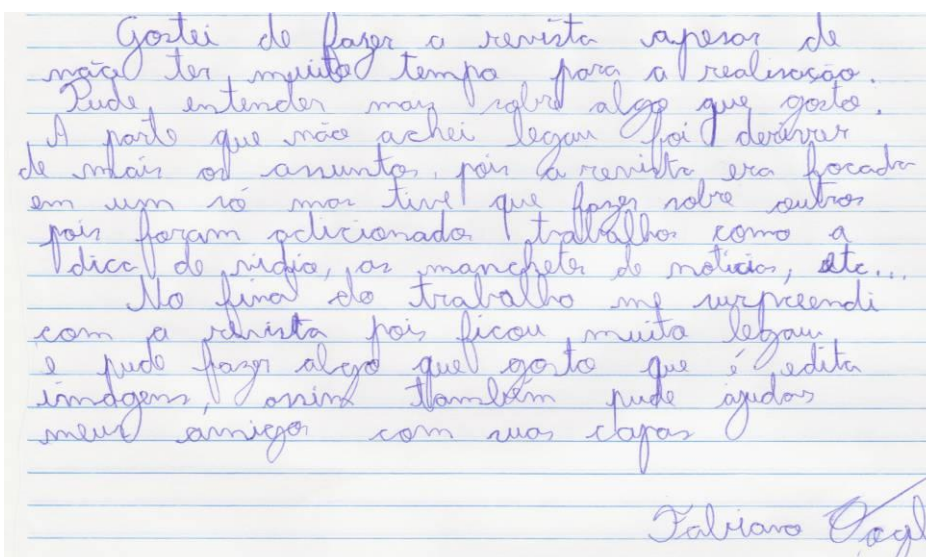 Gostei de fazer a revista apesar de
não ter muito tempo para a realisação.
Pude entender mais sobre algo que gosto.
A parte que não achei legau foi derivar
de mais os assuntos, pois a revista era focada
em um só mas tive que fazer sobre outros
pois foram adicionados trabalhos como a
dica de vidio, as manchetes de noticias, etc...
No final do trabalho me surpreendi
com a revista pois ficou muito legau
e pude fazer algo que gosto que é edita
imagens, assim também pude ajudar
meus amigos com suas capas
Fabiano